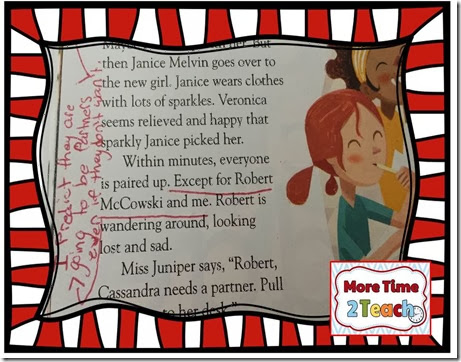 then Janice Melvin goes over to
the new girl. Janice wears clothes
with lots of sparkles. Veronica
seems relieved and happy that
sparkly Janice picked her.
Within minutes, everyone
is paired up. Except for Robert
McCowski and me. Robert is
wandering around, looking
lost and sad.
Miss Juniper says, “Robert,
Cassandra needs a partner. Pull
to her desk.”
I predict they are
going to be partners
even if they don't want
More Time
2Teach